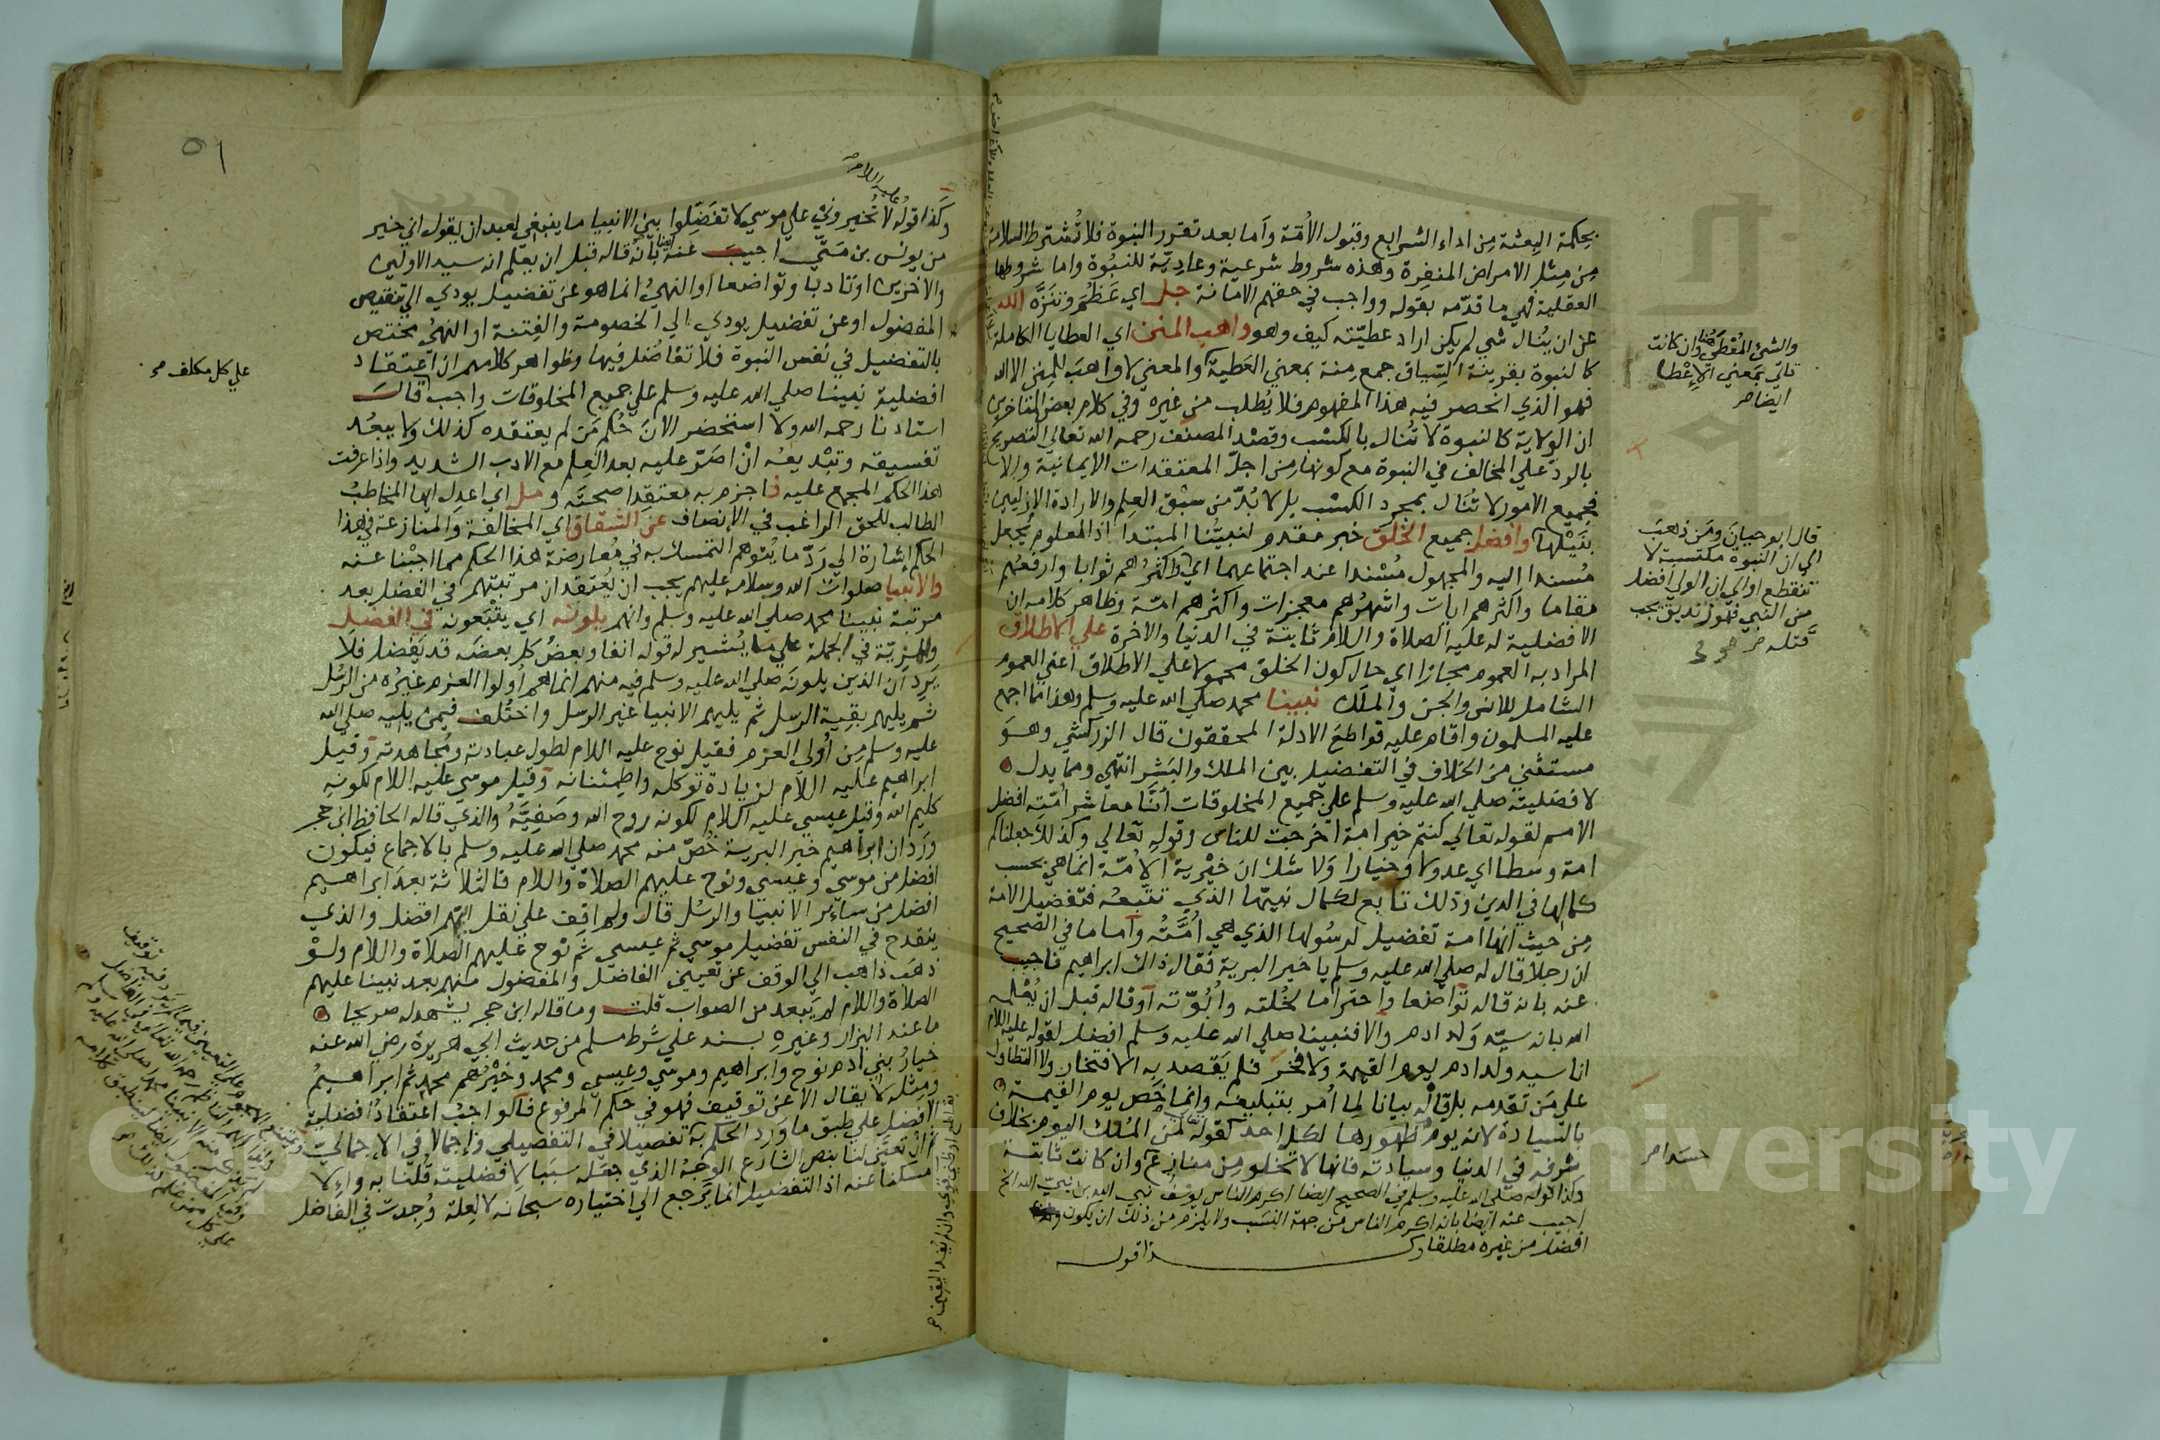 بحكمة البعثة من اداء الشرايع وقبول الأمة وأما بعد تقرر النبوة فلا تُشترط السلامة
من مثل الامراض المنفرة وهذه شروط شرعية وعادية للنبوة واما شروطها
العقلية فهي ما قدمه بقوله وواجب في حقهم الامانة جل اي عظم وتنزه الله
عن ان يُنال شي لم يكن اراد عطيته كيف وهو واهب المنن اي العطايا الكاملة
كالنبوة بقرينة السياق جمع منة بمعني العطية والمعني لا واهب للمنن الا الله
فهو الذي انحصر فيه هذا المفهوم فلا يُطلب من غيره وفي كلام بعض المتاخرين
ان الولاية كالنبوة لا تُنال بالكسب وقصد المصنف رحمه الله تعالي التصريح
بالرد علي المخالف في النبوة مع كونها من اجلّ المعتقدات الايمانية والا
فجميع الامور لا تُنال بمجرد الكسب بل لا بُدّ من سبق العلم والارادة الازليين
بنيلها وافضل جميع الخلق خبر مقدم لنبيّنا المبتدا اذ المعلوم يُجعل
مُسندا اليه والمجهول مُسندا عند اجتماعهما اي اكثرهم ثوابا وارفعهم
مقاما واكثرهم ايات واشهرهم معجزات واكثرهم امّة وظاهر كلامه ان
الافضلية له عليه الصلاة والسلام ثابتة في الدنيا والاخرة علي الاطلاق
المراد به العموم مجازا اي حال كون الخلق محمولا علي الاطلاق اعني العموم
الشامل للانس والجن والملك نبينا محمد صلي الله عليه وسلم وهذا مما اجمع
عليه المسلمون واقام عليه قواطع الادلة المحققون قال الزركشي وهو
مستثني من الخلاف في التفضيل بين الملك والبشر انتهي ومما يدل
لافضليته صلي الله عليه وسلم علي جميع المخلوقات أنّا معاشر أمّته افضل
الامم لقوله تعالي كنتم خير امة اخرجت للناس وقوله تعالي وكذلك جعلناكم
امة وسطا اي عدولا وخيارا ولا شك ان خيرية الامّة انما هي بحسب
كمالها في الدين وذلك تابع لكمال نبيّها الذي تتبعه فتفضيل الامة
من حيث انها امة تفضيل لرسولها الذي هي أمّته وأما ما في الصحيح
ان رجلا قال له صلي الله عليه وسلم يا خير البرية فقال ذاك ابراهيم فاجيب
عنه بانه قاله تواضعا واحتراما لخُلته وأبوّته أو قاله قبل ان يُعْلِمه
الله بانه سيّد وَلد ادم والا فنبينا صلي الله عليه وسلم افضل لقوله عليه السلام
انا سيد ولد ادم يوم القيمة ولا فخر فلم يقصد به الافتخار ولا التطاول
علي من تقدمه بل قاله بيانا لما أُمر بتبليغه وانما خَص يوم القيمة
بالسيادة لانه يوم ظهورها لكل احد كقوله لمن المُلك اليوم بخلاف
شرفه في الدنيا وسيادته فانها لا تخلو من منازع وان كانت ثابتة
وكذا قوله صلي الله عليه وسلم في الصحيح ايضا اكرم الناس يوسف نبي الله بن نبي الله الخ
اجيب عنه ايضا بانه اكرم الناس من جهة النسب ولا يلزم من ذلك ان يكون
افضل من غيره مطلقا وكذا قوله
والشئ المُعْطَي منا وان كانت
تاتي بمعني الاعطا
ايضا صح
قال ابو حيان ومَن ذهب
الي ان النبوة مكتسبة لا
تنقطع او الي ان الولي افضل
من النبي فهو زنديق يجب
قتله صح
٥١
عليه السلام
وكذا قوله لا تُخيروني علي موسي لا تفضّلوا بين الانبيا ما ينبغي لعبد ان يقول اني خير
من يونس بن متّي اجيب عنه ايضا بانه قاله قبل ان يعلم انه سيد الاولين
والاخرين او تادبا وتواضعا او النهيُ انما هو عن تفضيل يودي الي تنقيص
المفضول او عن تفضيل يودي الي الخصومة والفتنة او النهيُ مختص
بالتفضيل في نفس النبوة فلا تفاضُل فيها وظواهر كلامهم ان اعتقاد
افضلية نبينا صلي الله عليه وسلم علي جميع المخلوقات واجب قال
استادنا رحمه الله ولا استحضر الان حُكم مَن لم يعتقده كذلك ولا يبعُد
تفسيقه وتبديعه ان اصَرّ عليه بعد العلم مع الادب الشديد واذا عرفت
هذا الحكم المجمع عليه فاجزم به معتقِدا صحته و مل اي اعدل ايها المخاطب
الطالب للحق الراغب في الانصاف عن الشقاق اي المخالفة والمنازعة في هذا
الحكم اشارة الي رَدّ ما يُتوهم التمسك به في مُعارضة هذا الحكم مما اجبنا عنه
والانبيا صلوات الله وسلامه عليهم يجب ان يُعتقد ان مرتبتهم في الفضل بعد
مرتبة نبينا محمد صلي الله عليه وسلم وانهم يلونه اي يتبعونه في الفضل
والمزيّة في الجملة علي ما يُشير له قوله انفا وبعضُ كل بعضَه قد يَفضل فلا
يَرِد ان الذين يلونه صلي الله عليه وسلم فيه منهم انما هم أولوا العزم غيرُه من الرسُل
ثم يليهم بقية الرسل ثم يليهم الانبيا غير الرسل واختُلف فيمن يليه صلي الله
عليه وسلم من أولي العزم فقيل نوح عليه السلام لطول عبادته ومُجاهدته وقيل
ابراهيم عليه السلام لزيادة توكله واطمئنانه وقيل موسي عليه السلام لكونه
كليم الله وقيل عيسي عليه السلام لكونه روح الله وصَفِيّه والذي قاله الحافظ ابن حجر
وَرَد ان ابراهيم خير البرية خُصّ منه محمد صلي الله عليه وسلم بالاجماع فيكون
افضل من موسي وعيسي ونوح عليهم الصلاة والسلام فالثلاثة بعد ابراهيم
افضل من ساير الانبيا والرسُل قال ولم اقف علي نقل ايّهم افضل والذي
ينقدح في النفس تفضيل موسي ثم عيسي ثم نوح عليهم الصلاة والسلام ولو
ذهب ذاهب الي الوقف عن تعيين الفاضل والمفضول منهم بعد نبينا عليهم
الصلاة والسلام لم يَبعد من الصواب قلت وما قاله ابن حجر يشهد له صريحا
ما عند البزار وغيره بسند علي شرط مسلم من حديث ابي هريرة رضي الله عنه
خيارُ بني ادم نوح وابراهيم وموسي وعيسي ومحمد وخيرُهم محمد ثم ابراهيمُ
ومثله لا يقال الا عن توقيف فهو في حكم المرفوع فالواجب اعتقادُ افضلية
الافضل علي طبق ما ورد الحكم به تفصيلا في التفصيلي وإجمالا في الاجمالي
ان تعيّن لنا بنص الشارع الوجهُ الذي جعَل سببا لافضليته قُلنا به والا
امسكنا عنه اذ التفضيل انما يرجع الي اختياره سبحانه لا لعلة وُجدت في الفاضل
علي كل مكلف صح